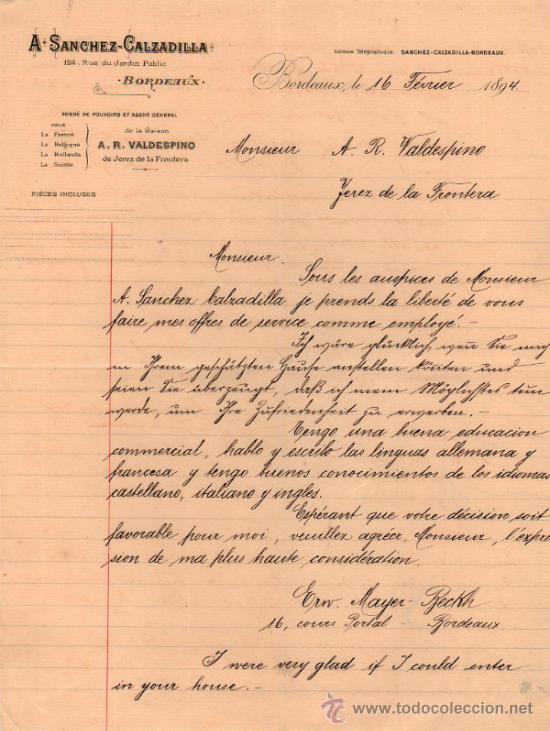 A. SANCHEZ-CALZADILLA
124, Rue du Jardin Public
BORDEAUX
Adresse Télégraphique: SANCHEZ-CALZADILLA-BORDEAUX.
Bordeaux, le 16 Février 1894
FONDÉ DE POUVOIRS ET AGENT GÉNÉRAL
POUR
La France
La Belgique
La Hollande
La Suisse
de la Maison
A. R. VALDESPINO
de Jerez de la Frontera
PIÈCES INCLUSES
Monsieur A. R. Valdespino
Jerez de la Frontera
Monsieur.
Sous les auspices de Monsieur
A. Sanchez Calzadilla je prends la liberté de vous
faire mes offres de service comme employé.-
Ich wäre glücklich, wen Sie mich
in Ihrem geschätzten Hause anstellen könten und
seien Sie überzeugt, daß ich mein Möglichstes tun
werde, um Ihre Zufriedenheit zu erwerben.-
Tengo una buena educacion
commercial, hablo y escribo las linguas allemana y
francesa y tengo buenos conocimientos de los idiomas
castellano, italiano y ingles.
Espérant que votre décision soit
favorable pour moi, veuillez agréer, Monsieur, l'expres
sion de ma plus haute considération.
Ern. Mayer-Beckh
16, cours Portal - Bordeaux.
I were very glad if I could enter
in your house.-
todocoleccion.net